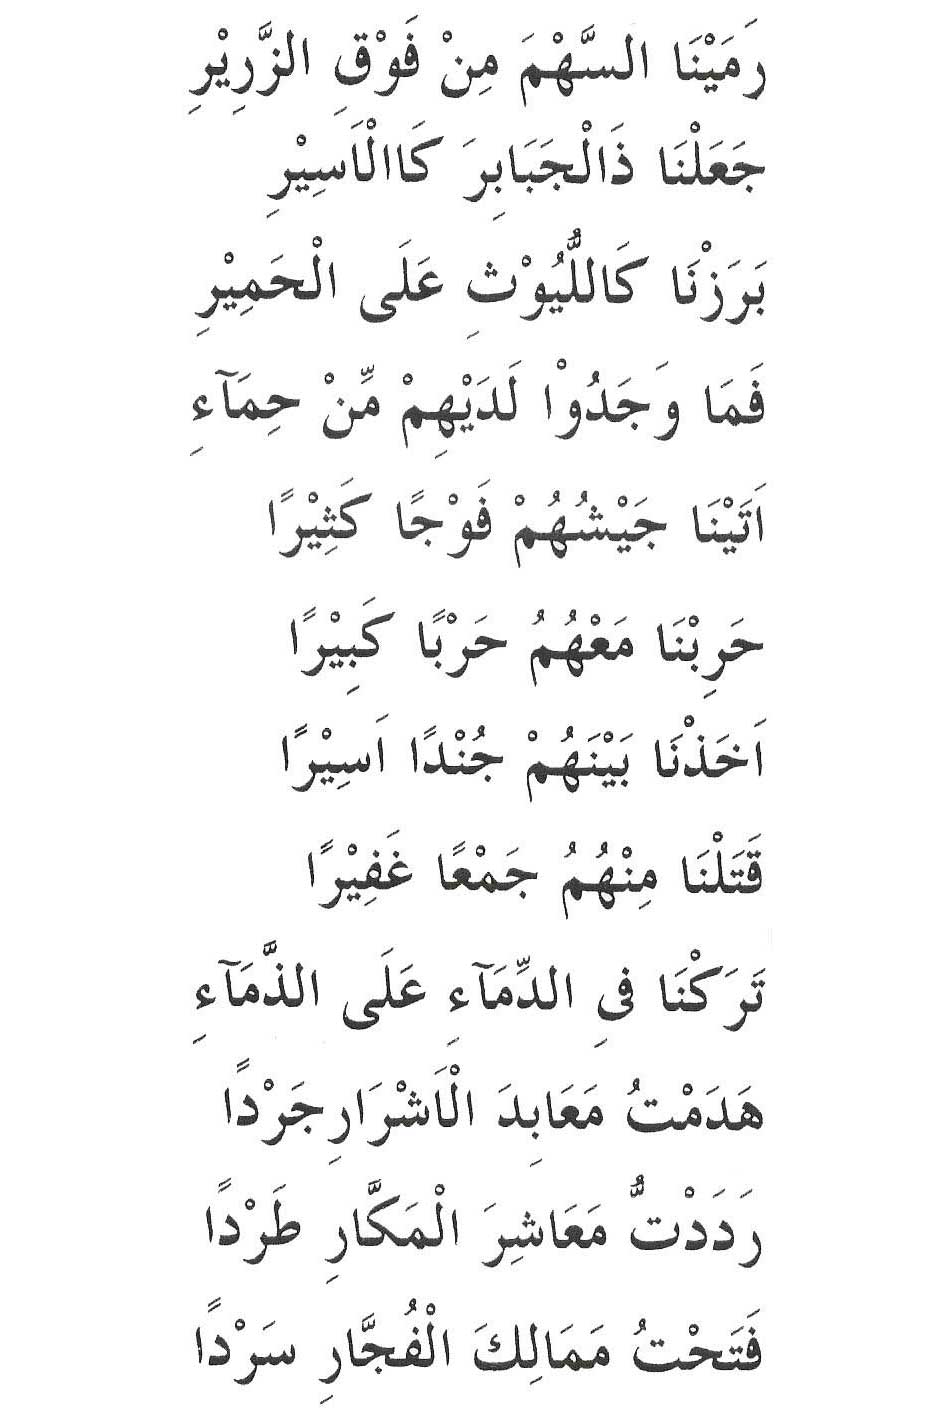 رَمَيْنَا السَّهْمَ مِنْ فَوْقِ الزَّرِيْرِ
جَعَلْنَا ذَالْجَبَابِرَ كَاالْاَسِيْرِ
بَرَزْنَا كَاللُّيُوْثِ عَلَى الْحَمِيْرِ
فَمَا وَجَدُوْا لَدَيْهِمْ مِّنْ حِمَآءِ
اَتَيْنَا جَيْشُهُمْ فَوْجًا كَثِيْرًا
حَرِبْنَا مَعْهُمُ حَرْبًا كَبِيْرًا
اَخَذْنَا بَيْنَهُمْ جُنْدًا اَسِيْرًا
قَتَلْنَا مِنْهُمُ جَمْعًا غَفِيْرًا
تَرَكْنَا فِي الدِّمَآءِ عَلَى الذَّمَآءِ
هَدَمْتُ مَعَابِدَ الْاَشْرَارِجَرْدًا
رَدَدْتُّ مَعَاشِرَ الْمَكَّارِ طَرْدًا
فَتَحْتُ مَمَالِكَ الْفُجَّارِ سَرْدًا